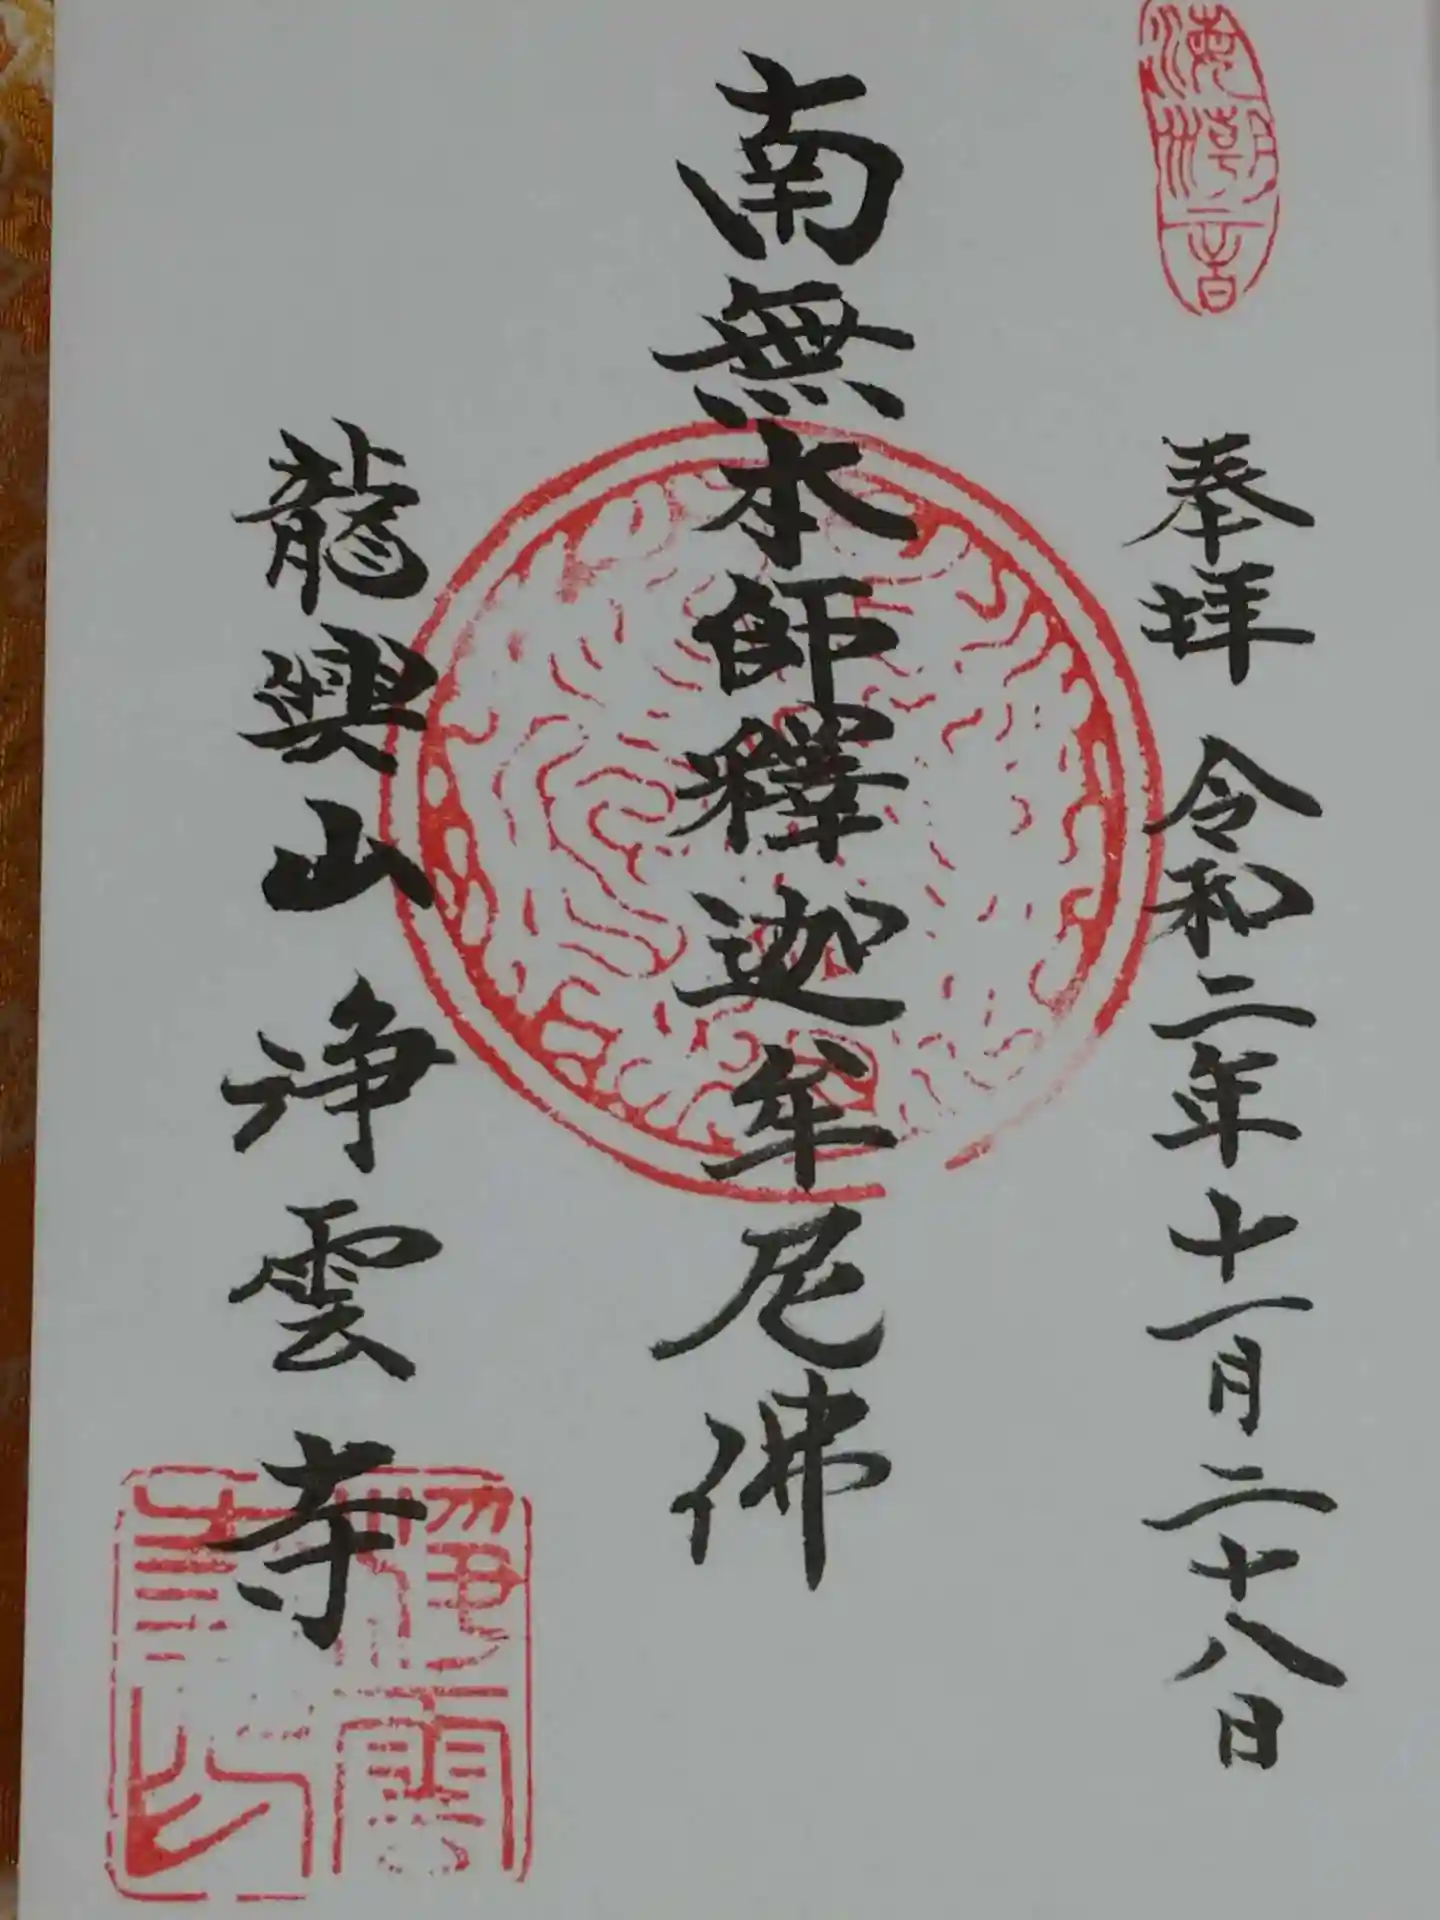 海潮音
奉拝 令和二年十一月二十八日
南無本師釋迦牟尼佛
龍興山 浄雲寺